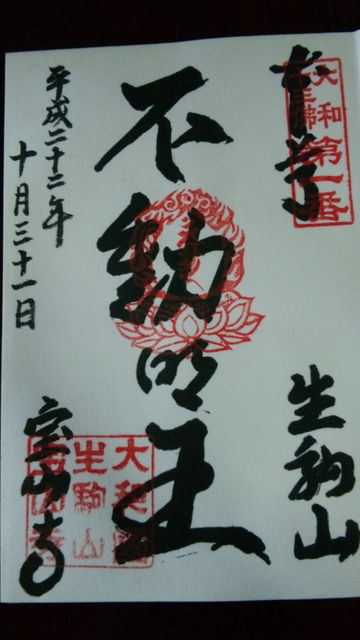 奉拝
大和
十三佛
第一番
生駒山
不動明王
平成二十二年
十月三十一日
宝山寺
大和國
生駒山